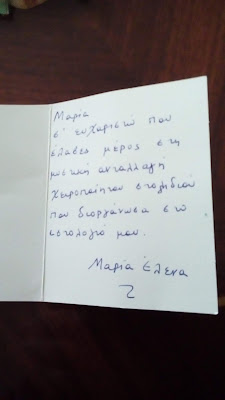 Μαρία
σ' ευχαριστώ που
έλαβες μέρος στη
μυστική ανταλλαγή
χειροποίητου στολιδιού
που διοργάνωσα στο
ιστολόγιό μου.
Μαρία Έλενα